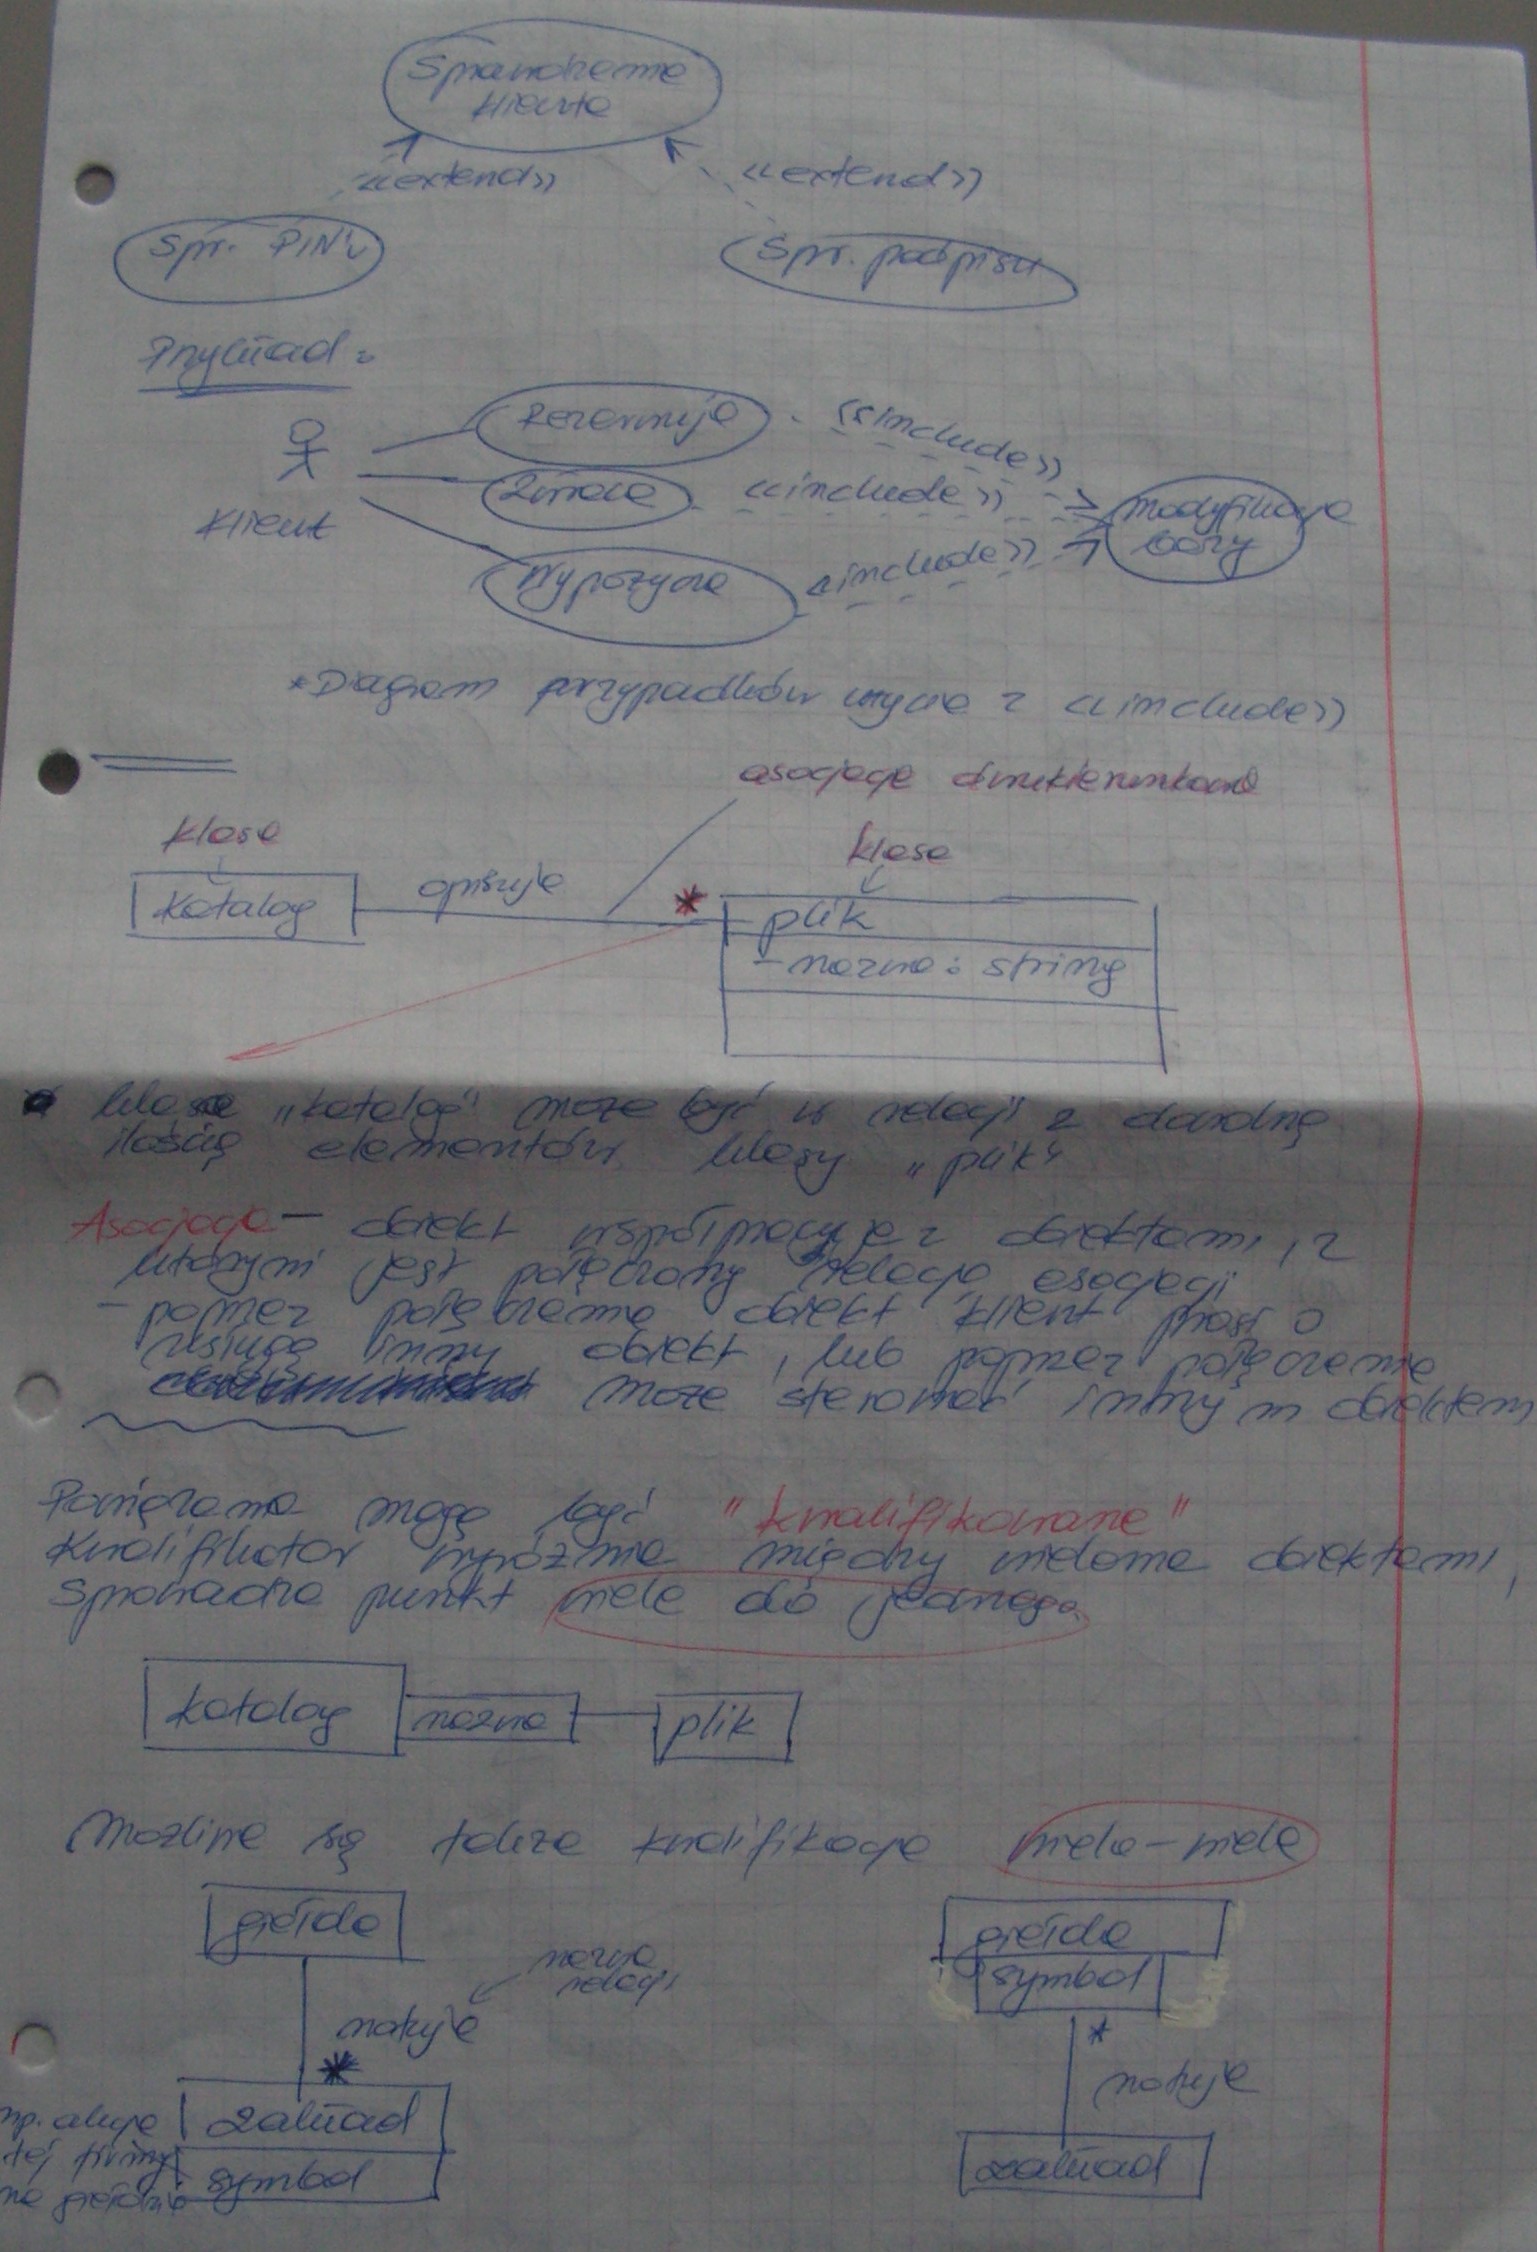 Sprawdzenie
klienta
<<extend>> <<extend>>
Spr. PIN'u Spr. podpisu
Przykład:
Rezerwuje <<include>>
Zwraca <<include>> modyfikuje
Klient bazy
Wypożycza <<include>>
*Diagram przypadków użycia z <<include>>
asocjacja dwukierunkowa
klasa klasa
Katalog opisuje * plik
- nazwa: string
klasa "katalog" może być w relacji z dowolną
ilością elementów klasy "plik"
Asocjacja - obiekt współpracuje z obiektami, z
którymi jest połączony relacją asocjacji
- poprzez połączenie obiekt klient prosi o
usługę inny obiekt, lub poprzez połączenie
może sterować innym obiektem
Powiązania mogą być "kwalifikowane"
Kwalifikator wyróżnia między wieloma obiektami,
sprowadza punkt wiele do jednego.
katalog nazwa plik
Możliwe są także kwalifikacje wiele-wiele
giełda giełda
nazwa
relacji symbol
notuje *
* notuje
np. akcje zakład
tej firmy symbol zakład
na giełdzie